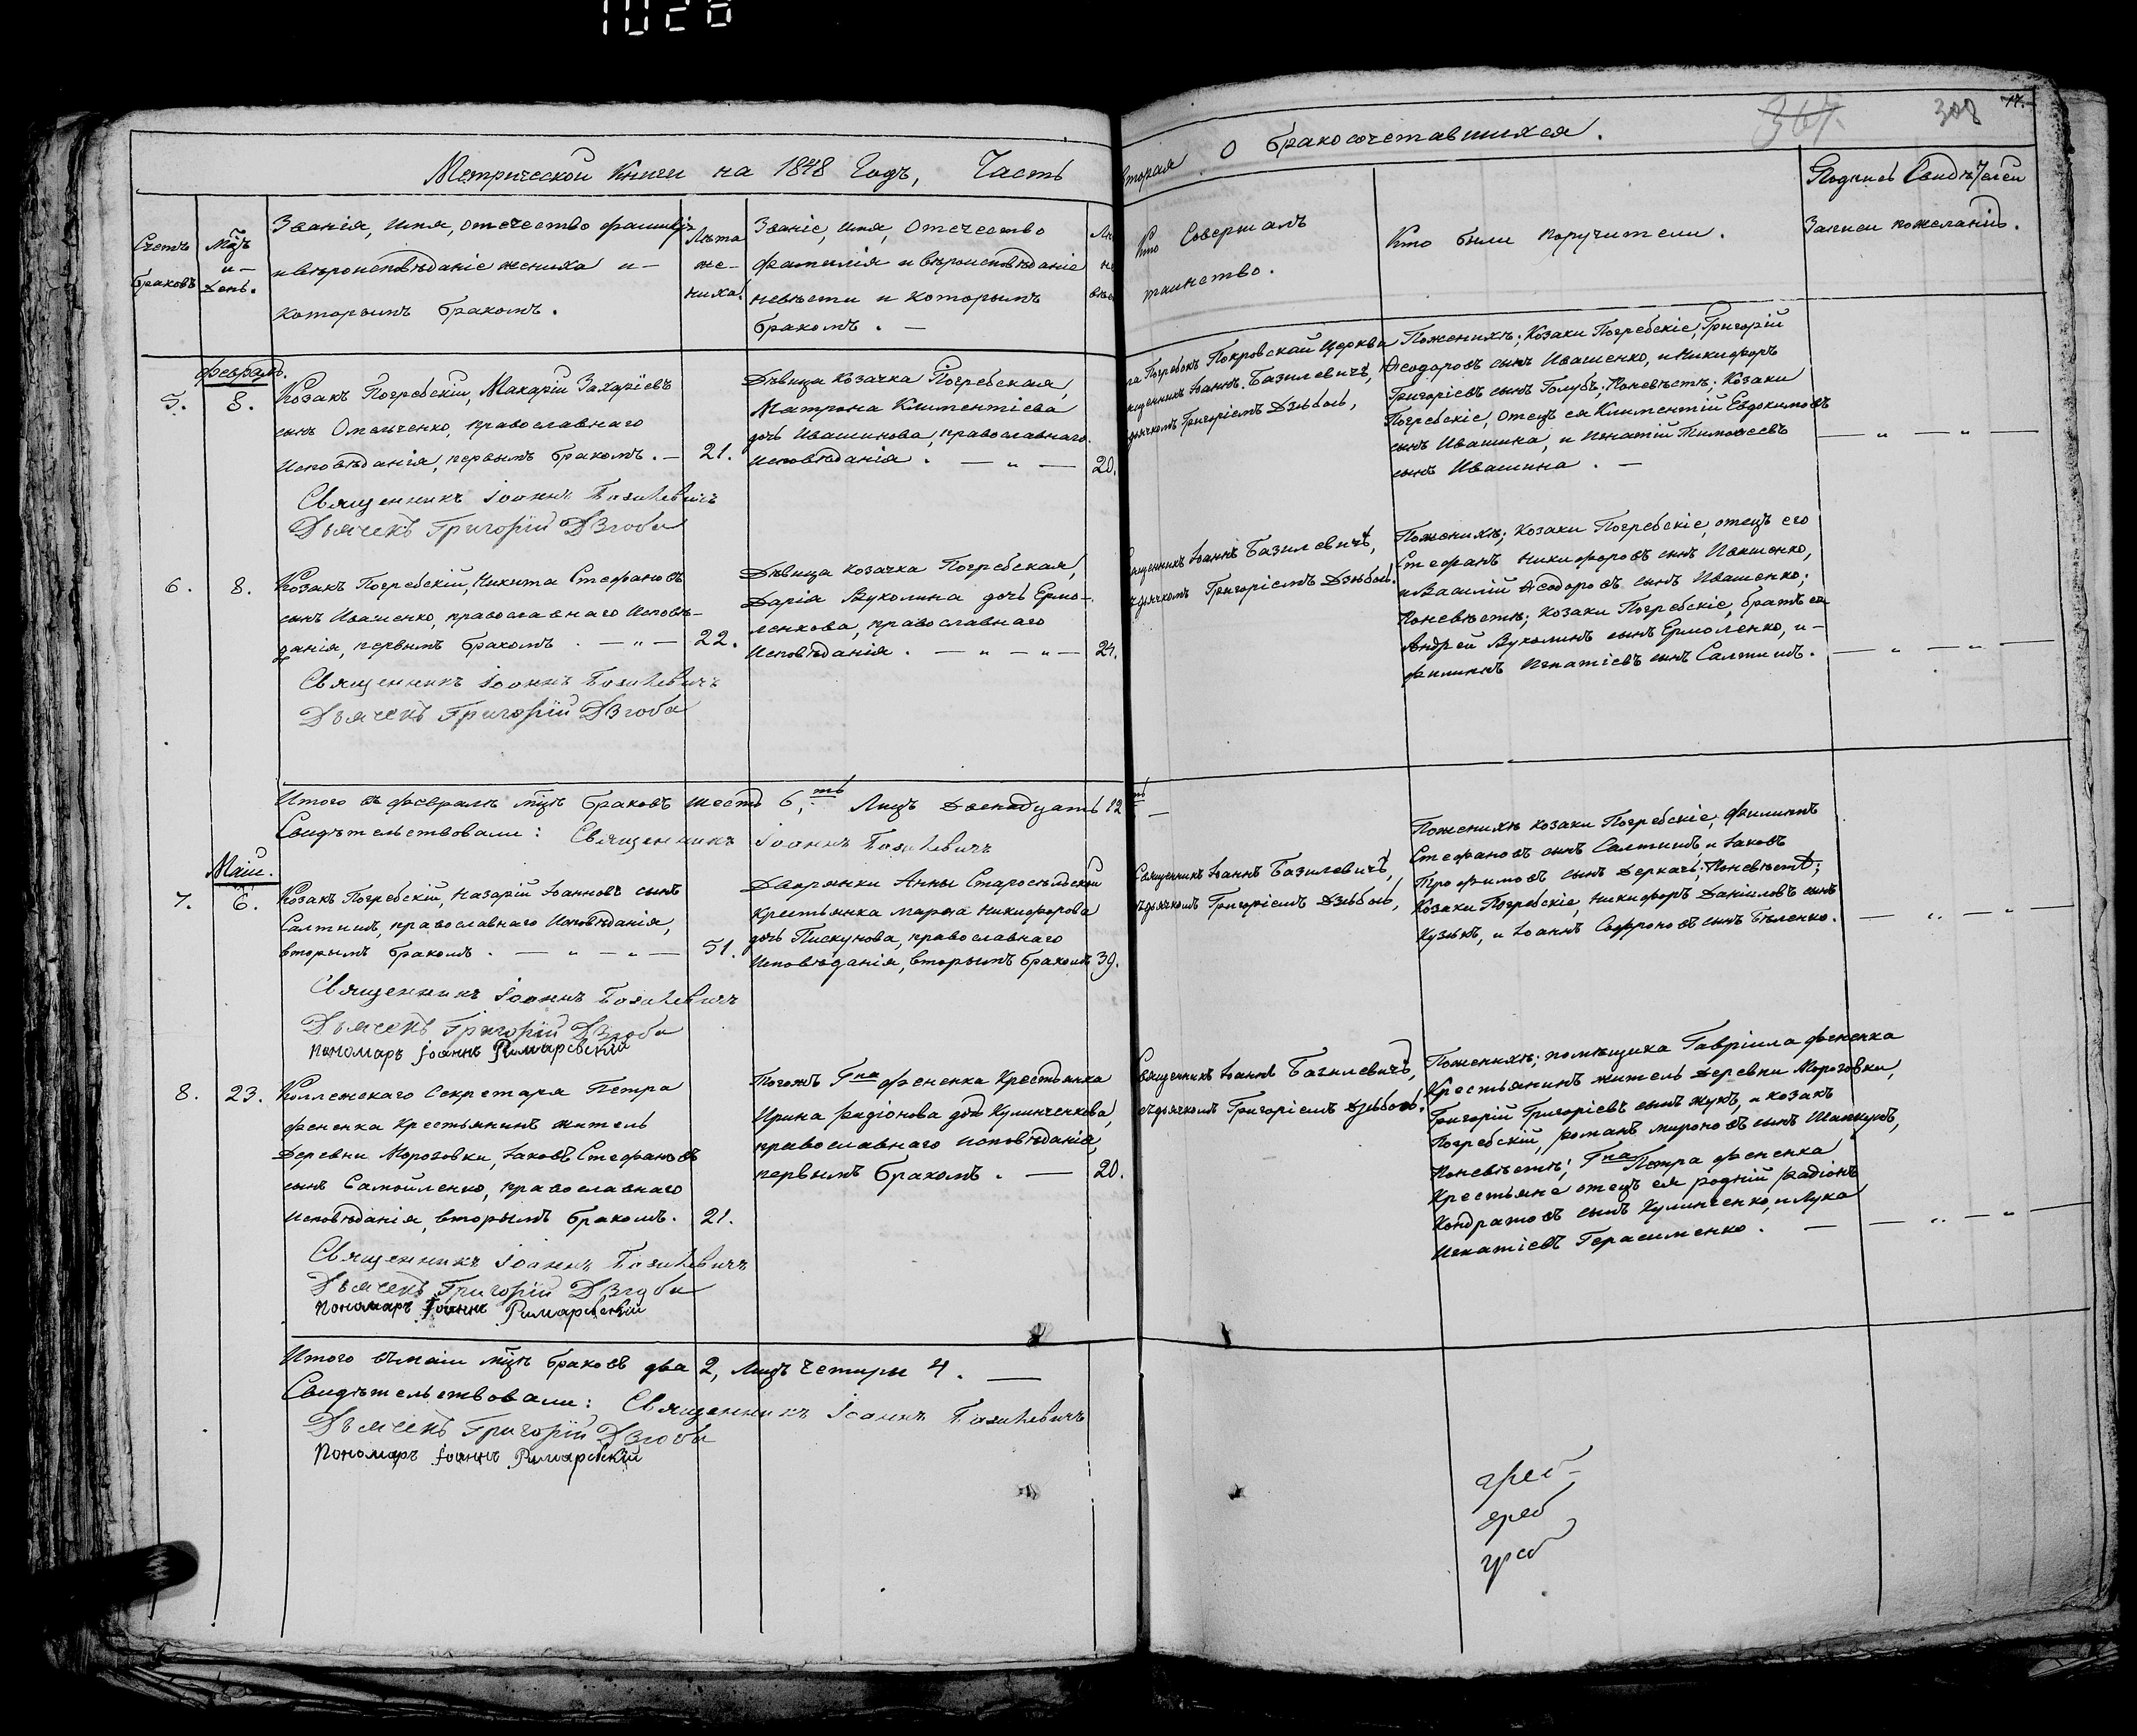 1028
Метрической Книги на 1848 Годъ, Часть вторая О бракосочетавшихся.
367.
308
77.
Счетъ браковъ
Мцъ и день.
Званія, имя, отечество фамилія
и вѣроисповѣданіе жениха и
которымъ бракомъ.
Лѣта
же-
ниха.
Званіе, имя, Отечество
фамилія и вѣроисповѣданіе
невѣсты и которымъ
бракомъ. —
Кто Совершалъ
таинство.
Кто были поручители.
Подпись Свидѣтелей
Записи пожеланію.
Февраль.
5.
8.
Козакъ Погребскій, Макарій Захаріевъ
сынъ Омельченко, православнаго
Исповѣданія, первымъ бракомъ. —
21.
Священникъ Іоаннъ Базилевичъ
Дьячекъ Григорій Дзюба
Дѣвица козачка Погребская,
Матрона Климентіева
дочь Ивашинова, православнаго
исповѣданія. — „ —
20.
Погребокъ Покровской Церкви
Священникъ Іоаннъ Базилевичъ,
дьячкомъ Григоріемъ Дзюбою,
Поженихѣ; Козаки Погребскіе, Григорій
Ѳеодоровъ сынъ Ивашенко, и Никифоръ
Григоріевъ сынъ Голубъ; Поневѣстѣ; Козаки
Погребскіе, Отецъ ея Климентій Евдокимовъ
сынъ Ивашина, и Игнатій Тимоѳеевъ
сынъ Ивашина. —
— „ — „ —
6.
8.
Козакъ Погребскій, Никита Стефановъ
сынъ Ивашенко, православнаго Исповѣ-
данія, первымъ бракомъ. — „ —
22.
Священникъ Іоаннъ Базилевичъ
Дьячекъ Григорій Дзюба
Дѣвица козачка Погребская,
Дарія Вуколина дочь Ермо-
ленкова, православнаго
Исповѣданія. — „ — „ —
24.
Священникъ Іоаннъ Базилевичъ,
съдьячкомъ Григоріемъ Дзюбою.
Поженихѣ; Козаки Погребскіе, отецъ его
Стефанъ Никифоровъ сынъ Ивашенко,
и Василій Ѳеодоровъ сынъ Ивашенко;
Поневѣстѣ; Козаки Погребскіе, братъ ея
Андрей Вуколинъ сынъ Ермоленко, и —
Филиппъ Игнатіевъ сынъ Салтишъ.
— „ — „ —
Итого въ февралѣ мцѣ браковъ шесть 6,ть Лицъ Двенадцать 12ть —
Свидѣтельствовали: Священникъ Іоаннъ Базилевичъ
Маій.
7.
6.
Козакъ Погребскій, Назарій Іоанновъ сынъ
Салтишъ, православнаго Исповѣданія,
вторымъ бракомъ. — „ — „ —
51.
Священникъ Іоаннъ Базилевичъ
Дьячекъ Григорій Дзюба
Пономарь Іоаннъ Римаревскій
Дворянки Анны Старосельской
крестьянка Марѳа Никифорова
дочь Пискунова, православнаго
Исповѣданія, вторымъ бракомъ
39.
Священникъ Іоаннъ Базилевичъ,
съдьячкомъ Григоріемъ Дзюбою,
Поженихѣ козаки Погребскіе, Филиппъ
Стефановъ сынъ Салтишъ и Іаковъ
Трофимовъ сынъ Деркачъ; Поневѣстѣ;
Козаки Погребскіе, Никифоръ Даніиловъ сынъ
и Іоаннъ Софроновъ сынъ Бѣленко.
— „ — „ —
8.
23.
Коллежскаго Секретаря Петра
Фененка Крестьянинъ житель
Деревни Морозовки, Іаковъ Стефановъ
сынъ Самойленко, православнаго
исповѣданія, вторымъ бракомъ.
21.
Священникъ Іоаннъ Базилевичъ
Дьячекъ Григорій Дзюба
Пономарь Іоаннъ Римаревскій
Тогожъ Гна Фененка Крестьянка
Ирина Радіонова дочь Кулинченкова,
православнаго исповѣданія,
первымъ бракомъ. —
20.
Священникъ Іоаннъ Базилевичъ,
съдьячкомъ Григоріемъ Дзюбою.
Поженихѣ; помѣщика Гавріила Фененка
Крестьянинъ житель Деревни Морозовки,
Григорій Григоріевъ сынъ Жукъ, и козакъ
Погребскій, Романъ Мироновъ сынъ
Поневѣстѣ; Гна Петра Фененка
Крестьяне отецъ ея родній Радіонъ
Кондратовъ сынъ Кулинченко, и Лука
Игнатіевъ Герасименко. —
— „ — „ —
Итого въ маіи мцѣ браковъ два 2, Лицъ четыри 4. —
Свидѣтельствовали: Священникъ Іоаннъ Базилевичъ
Дьячекъ Григорій Дзюба
Пономарь Іоаннъ Римаревскій